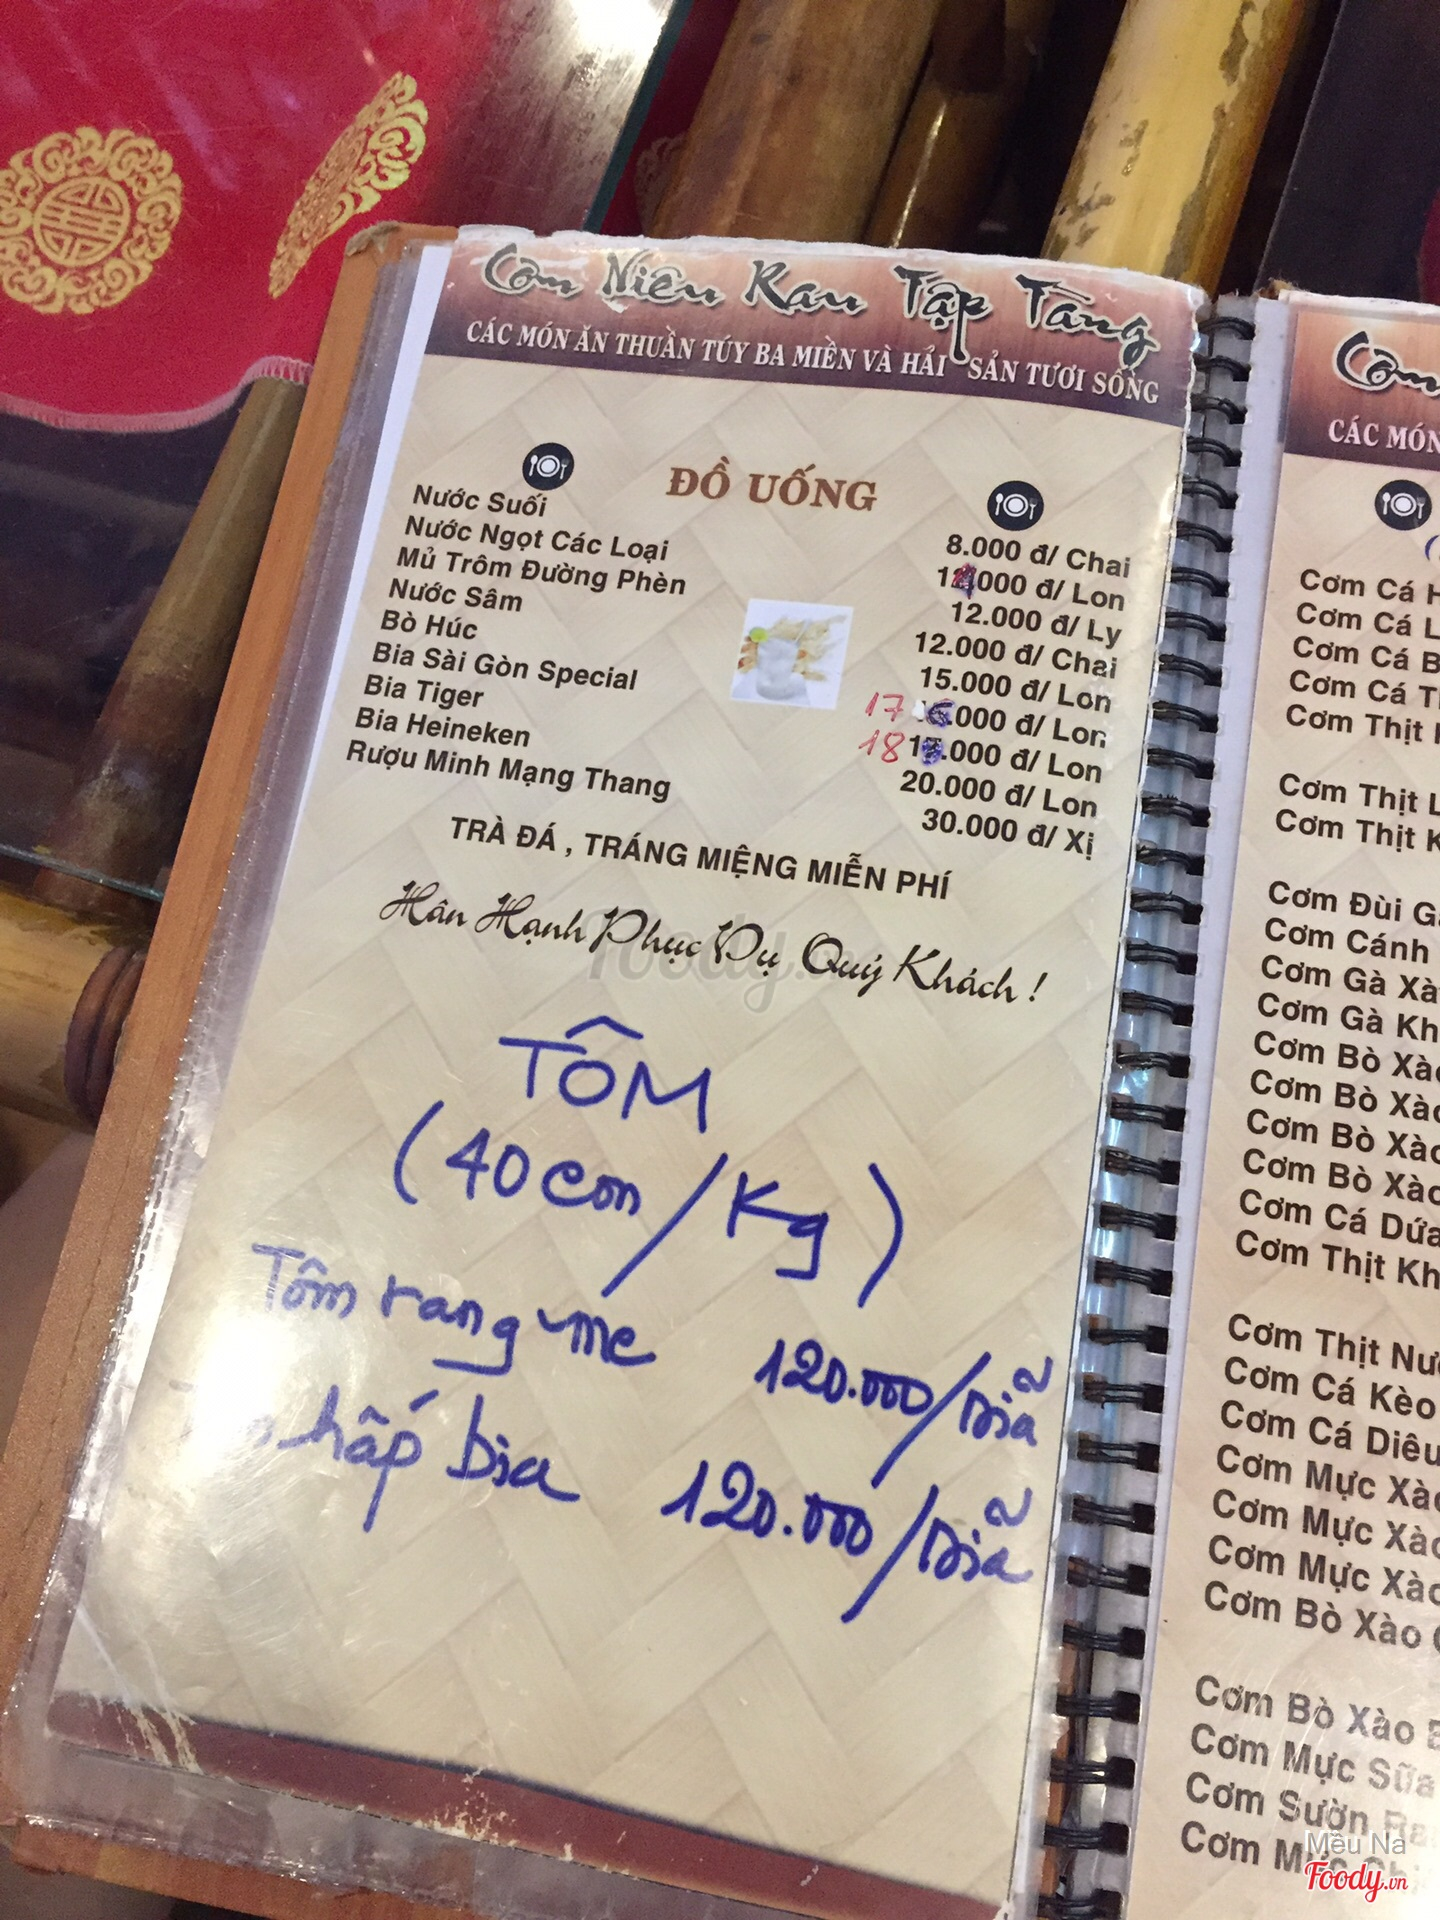 Cơm Niêu Rau Tập Tàng
CÁC MÓN ĂN THUẦN TÚY BA MIỀN VÀ HẢI SẢN TƯƠI SỐNG
ĐỒ UỐNG
Nước Suối 8.000 đ/ Chai
Nước Ngọt Các Loại 000 đ/ Lon
Mủ Trôm Đường Phèn 12.000 đ/ Ly
Nước Sâm 12.000 đ/ Chai
Bò Húc 15.000 đ/ Lon
Bia Sài Gòn Special 17 .000 đ/ Lon
Bia Tiger 18 .000 đ/ Lon
Bia Heineken 20.000 đ/ Lon
Rượu Minh Mạng Thang 30.000 đ/ Xị
TRÀ ĐÁ , TRÁNG MIỆNG MIỄN PHÍ
Hân Hạnh Phục Vụ Quý Khách !
TÔM
(40 con/Kg)
Tôm rang me 120.000/Dĩa
hấp bia 120.000/Dĩa
Cơm
CÁC MÓN
Cơm Cá
Cơm Cá
Cơm Cá
Cơm Cá
Cơm Thịt
Cơm Thịt
Cơm Thịt
Cơm Đùi
Cơm Cánh
Cơm Gà
Cơm Gà
Cơm Bò
Cơm Bò
Cơm Bò
Cơm Bò
Cơm Cá Dứa
Cơm Thịt
Cơm Thịt
Cơm Cá Kèo
Cơm Cá
Cơm Mực
Cơm Mực
Cơm Mực
Cơm Bò Xào
Cơm Bò Xào
Cơm Mực Sữa
Cơm Sườn
Cơm
Foody
Mều Na
Foody.vn